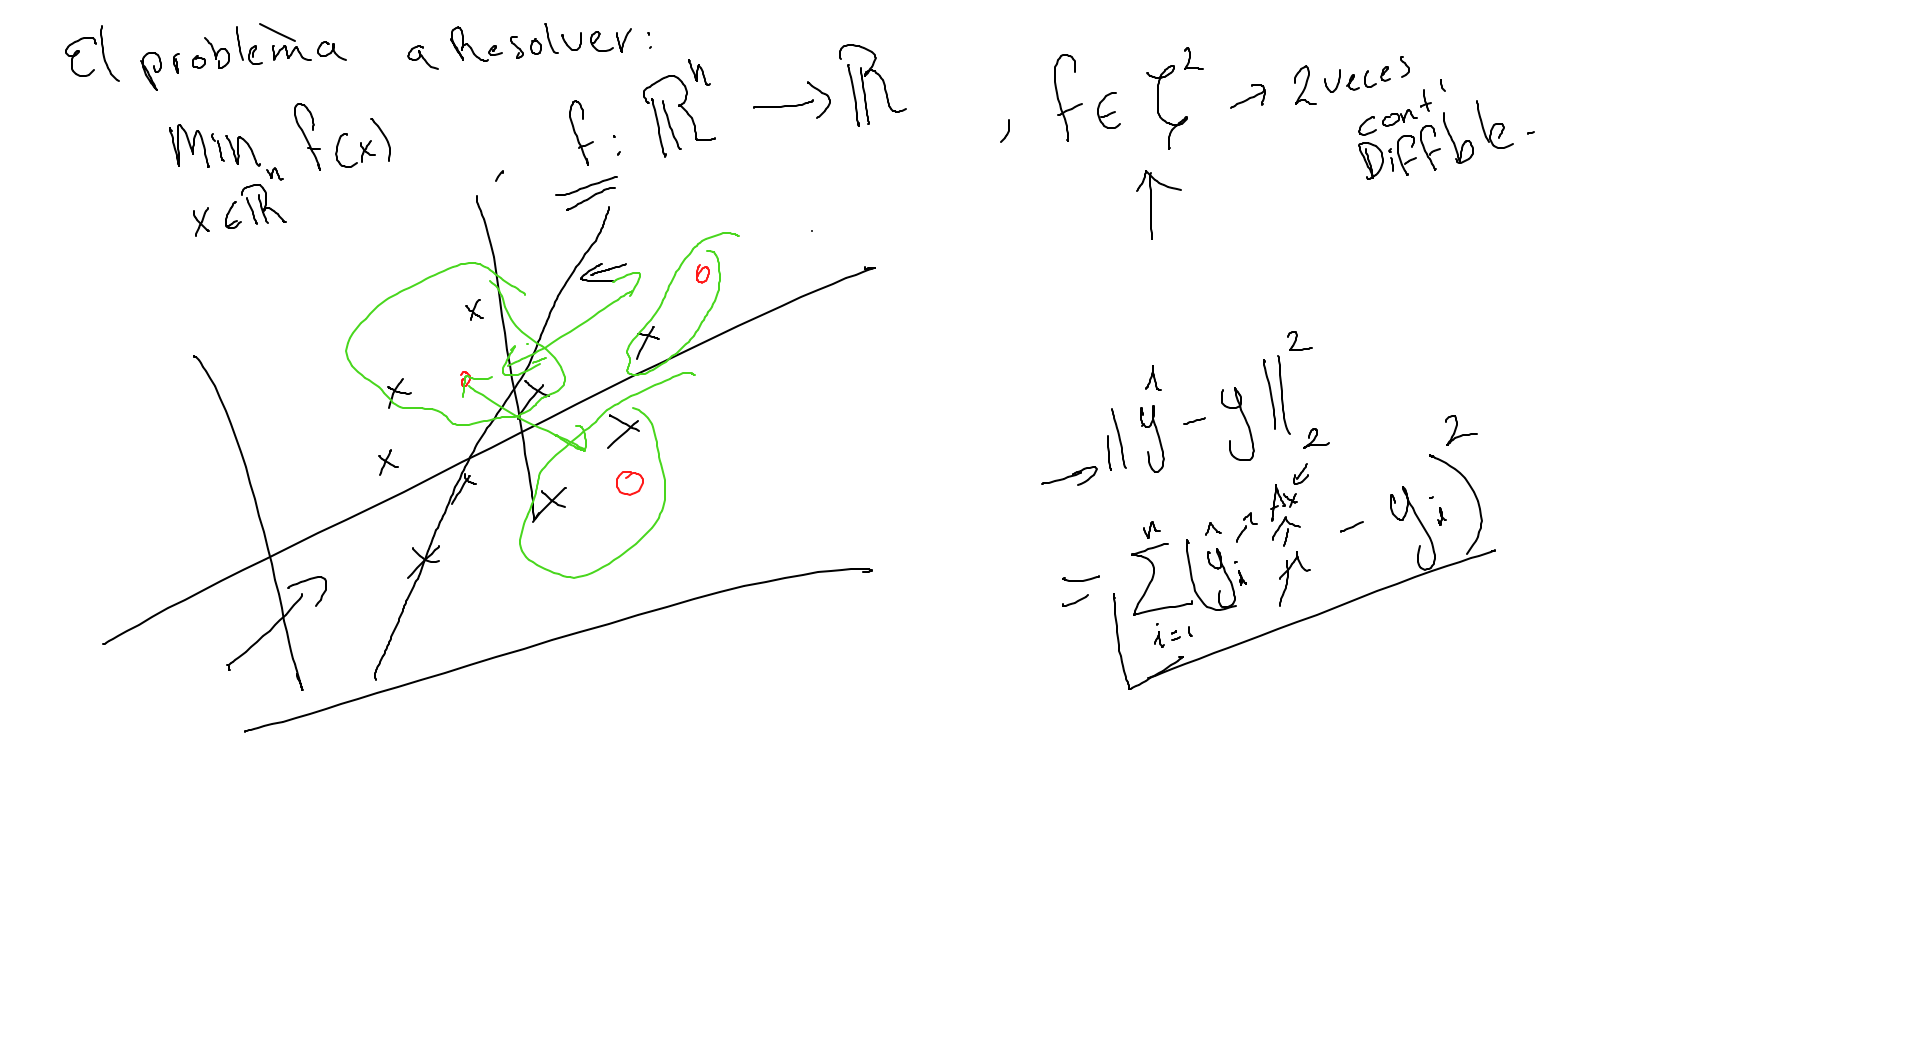 El problema a Resolver:
Min f(x)
x∈ℝⁿ
f: ℝⁿ → ℝ , f ∈ ζ² → 2 veces
conti
Diffble.
→ ‖ŷ - y‖₂²
Ax
= Σ (ŷᵢ - yᵢ)²
n
i=1